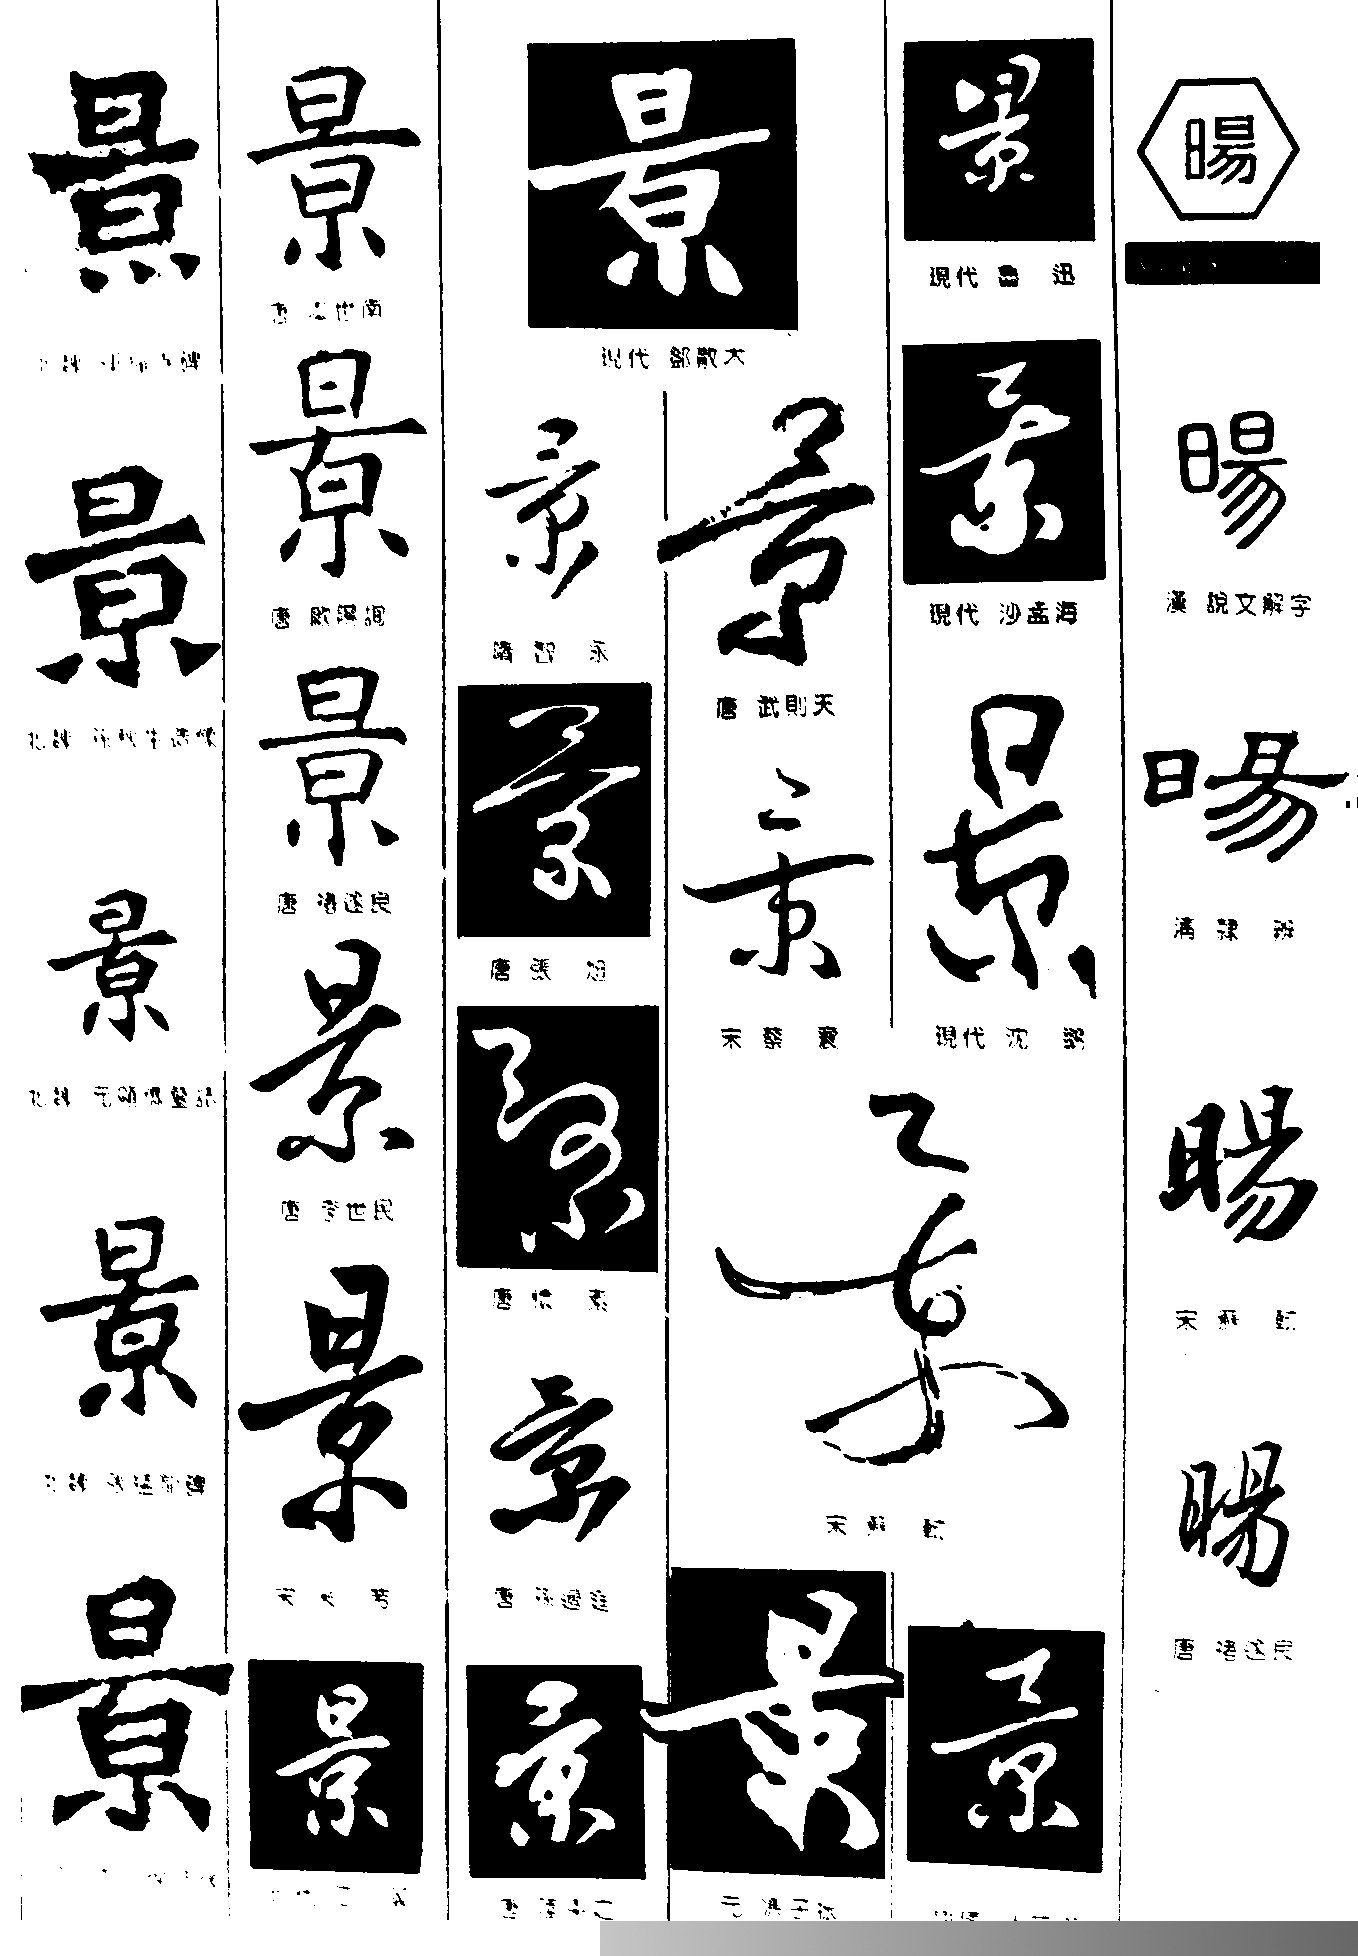 景
景
景
景
景
景
唐 虞世南
景
唐 歐陽詢
景
唐 褚遂良
景
唐 李世民
景
宋 米 芾
景
景
現代 鄧散木
景
隋 智 永
景
唐 張 旭
景
唐 懷 素
景
唐 孫過庭
景
景
唐 武則天
景
宋 蔡 襄
景
宋 蘇 軾
景
元 馮子振
景
現代 魯 迅
景
現代 沙孟海
景
現代 沈 鵬
景
暘
暘
漢 說文解字
暘
清 隸 辨
暘
宋 蘇 軾
暘
唐 褚遂良